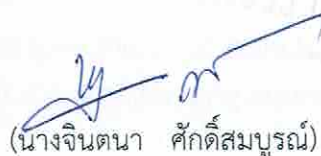 (นางจินตนา ศักดิ์สมบูรณ์)